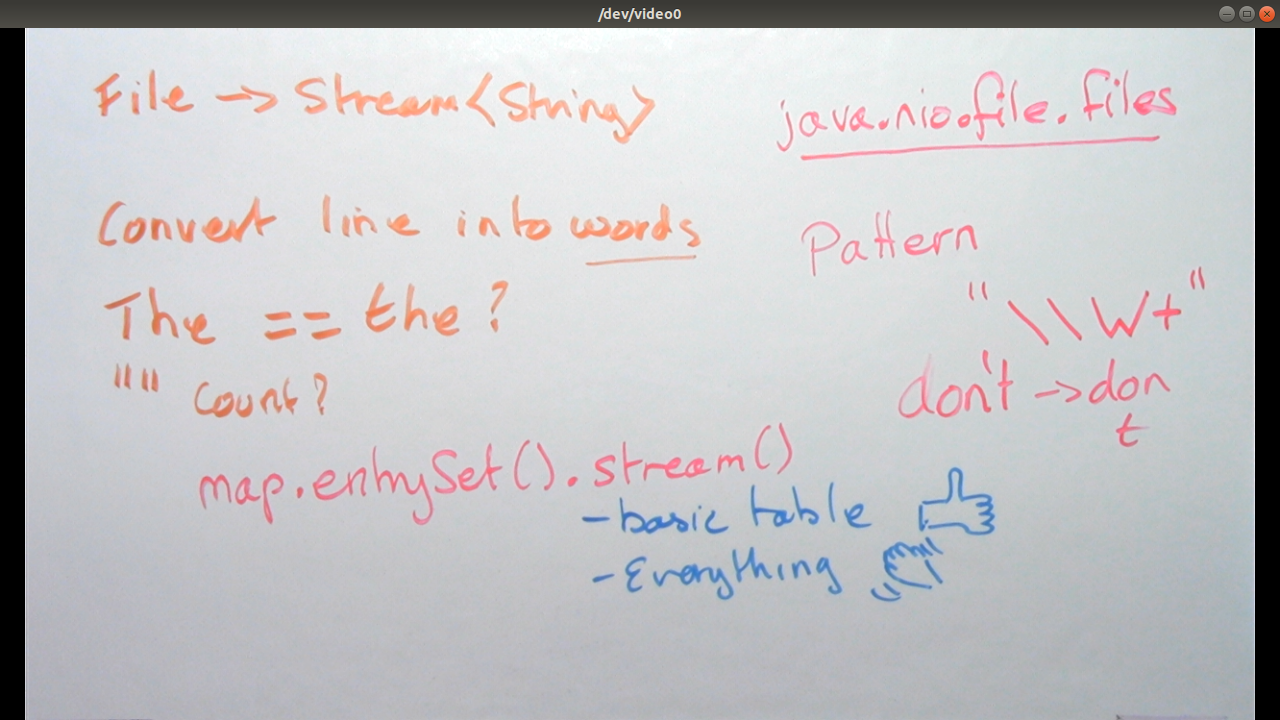 /dev/video0
File -> Stream<String>
java.nio.file.files
Convert line into words
Pattern
"\\W+"
The == the?
"" count?
don't -> don
t
map.entrySet().stream()
- basic table
- Everything